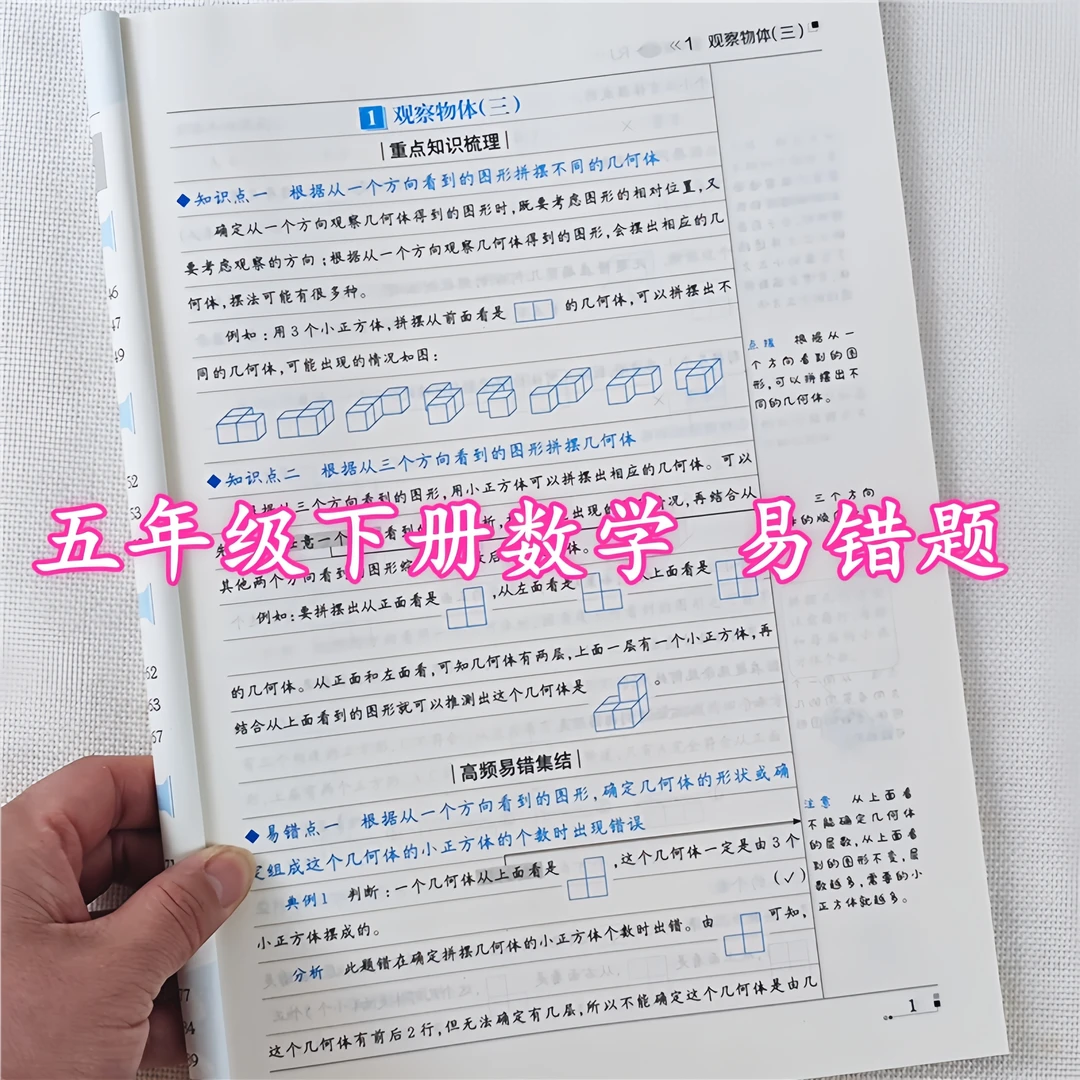 《1 观察物体(三)
1 观察物体(三)
重点知识梳理
◆知识点一 根据从一个方向看到的图形拼摆不同的几何体
确定从一个方向观察几何体得到的图形时,既要考虑图形的相对位置,又
要考虑观察的方向;根据从一个方向观察几何体得到的图形,会摆出相应的几
何体,摆法可能有很多种。
例如:用3个小正方体,拼摆从前面看是 的几何体,可以拼摆出不
同的几何体,可能出现的情况如图:
点拨 根据从一
个方向看到的图
形,可以拼摆出不
同的几何体。
◆知识点二 根据从三个方向看到的图形拼摆几何体
根据从三个方向看到的图形,用小正方体可以拼摆出相应的几何体。可以
意一个 看到 析, 出现的 情况,再结合从
其他两个方向看到的图形综 后 体。
三个方向
五年级下册数学 易错题
例如:要拼摆出从正面看是 ,从左面看是 从上面看是
的几何体。从正面和左面看,可知几何体有两层,上面一层有一个小正方体,再
结合从上面看到的图形就可以推测出这个几何体是 。
高频易错集结
◆易错点一 根据从一个方向看到的图形,确定几何体的形状或确
定组成这个几何体的小正方体的个数时出现错误
典例1 判断:一个几何体从上面看是 ,这个几何体一定是由3个
小正方体摆成的。 (✓)
分析 此题错在确定拼摆几何体的小正方体个数时出错。由 可知,
这个几何体有前后2行,但无法确定有几层,所以不能确定这个几何体是由几
注意 从上面看
不能确定几何体
的层数,从上面看
到的图形不变,层
数越多,需要的小
正方体就越多。
1
46
47
49
52
53
62
63
67
71
77
84
89